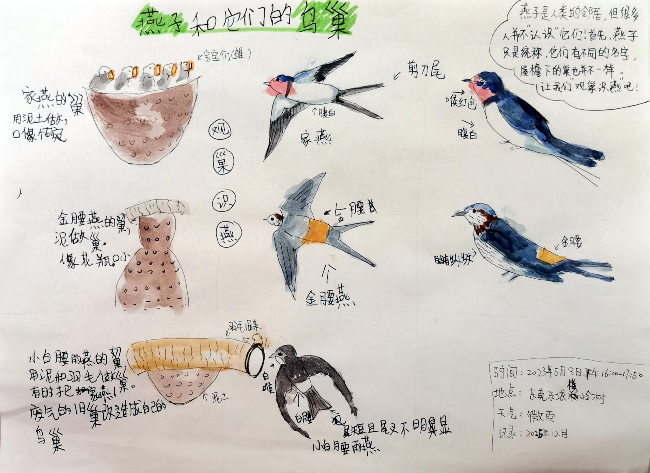 燕子和它们的鸟巢
燕子是人类的邻居,但很多
人并不"认识"它们!首先,燕子
只是统称,它们有不同的名字,
屋檐下的巢也并不一样。
让我们观巢识燕吧!
宝宝们(雏)
家燕的巢
用泥土做,
口像传碗
观
巢
识
燕
剪刀尾
腹白
家燕
喉红色
腹白
金腰燕的巢,
泥做巢。
像花瓶口小
金腰
金腰燕
金腰
腹有纵纹
小白腰雨燕的巢
用泥和羽毛做巢。
有时把家燕
废气的旧巢改造成自己的
鸟巢
泥土
白喉
白腰
尾短且尾叉不明显
小白腰雨燕
时间:2023年5月3日下午16:00-17:50
地点:
天气:微雨
记录:2025年12月